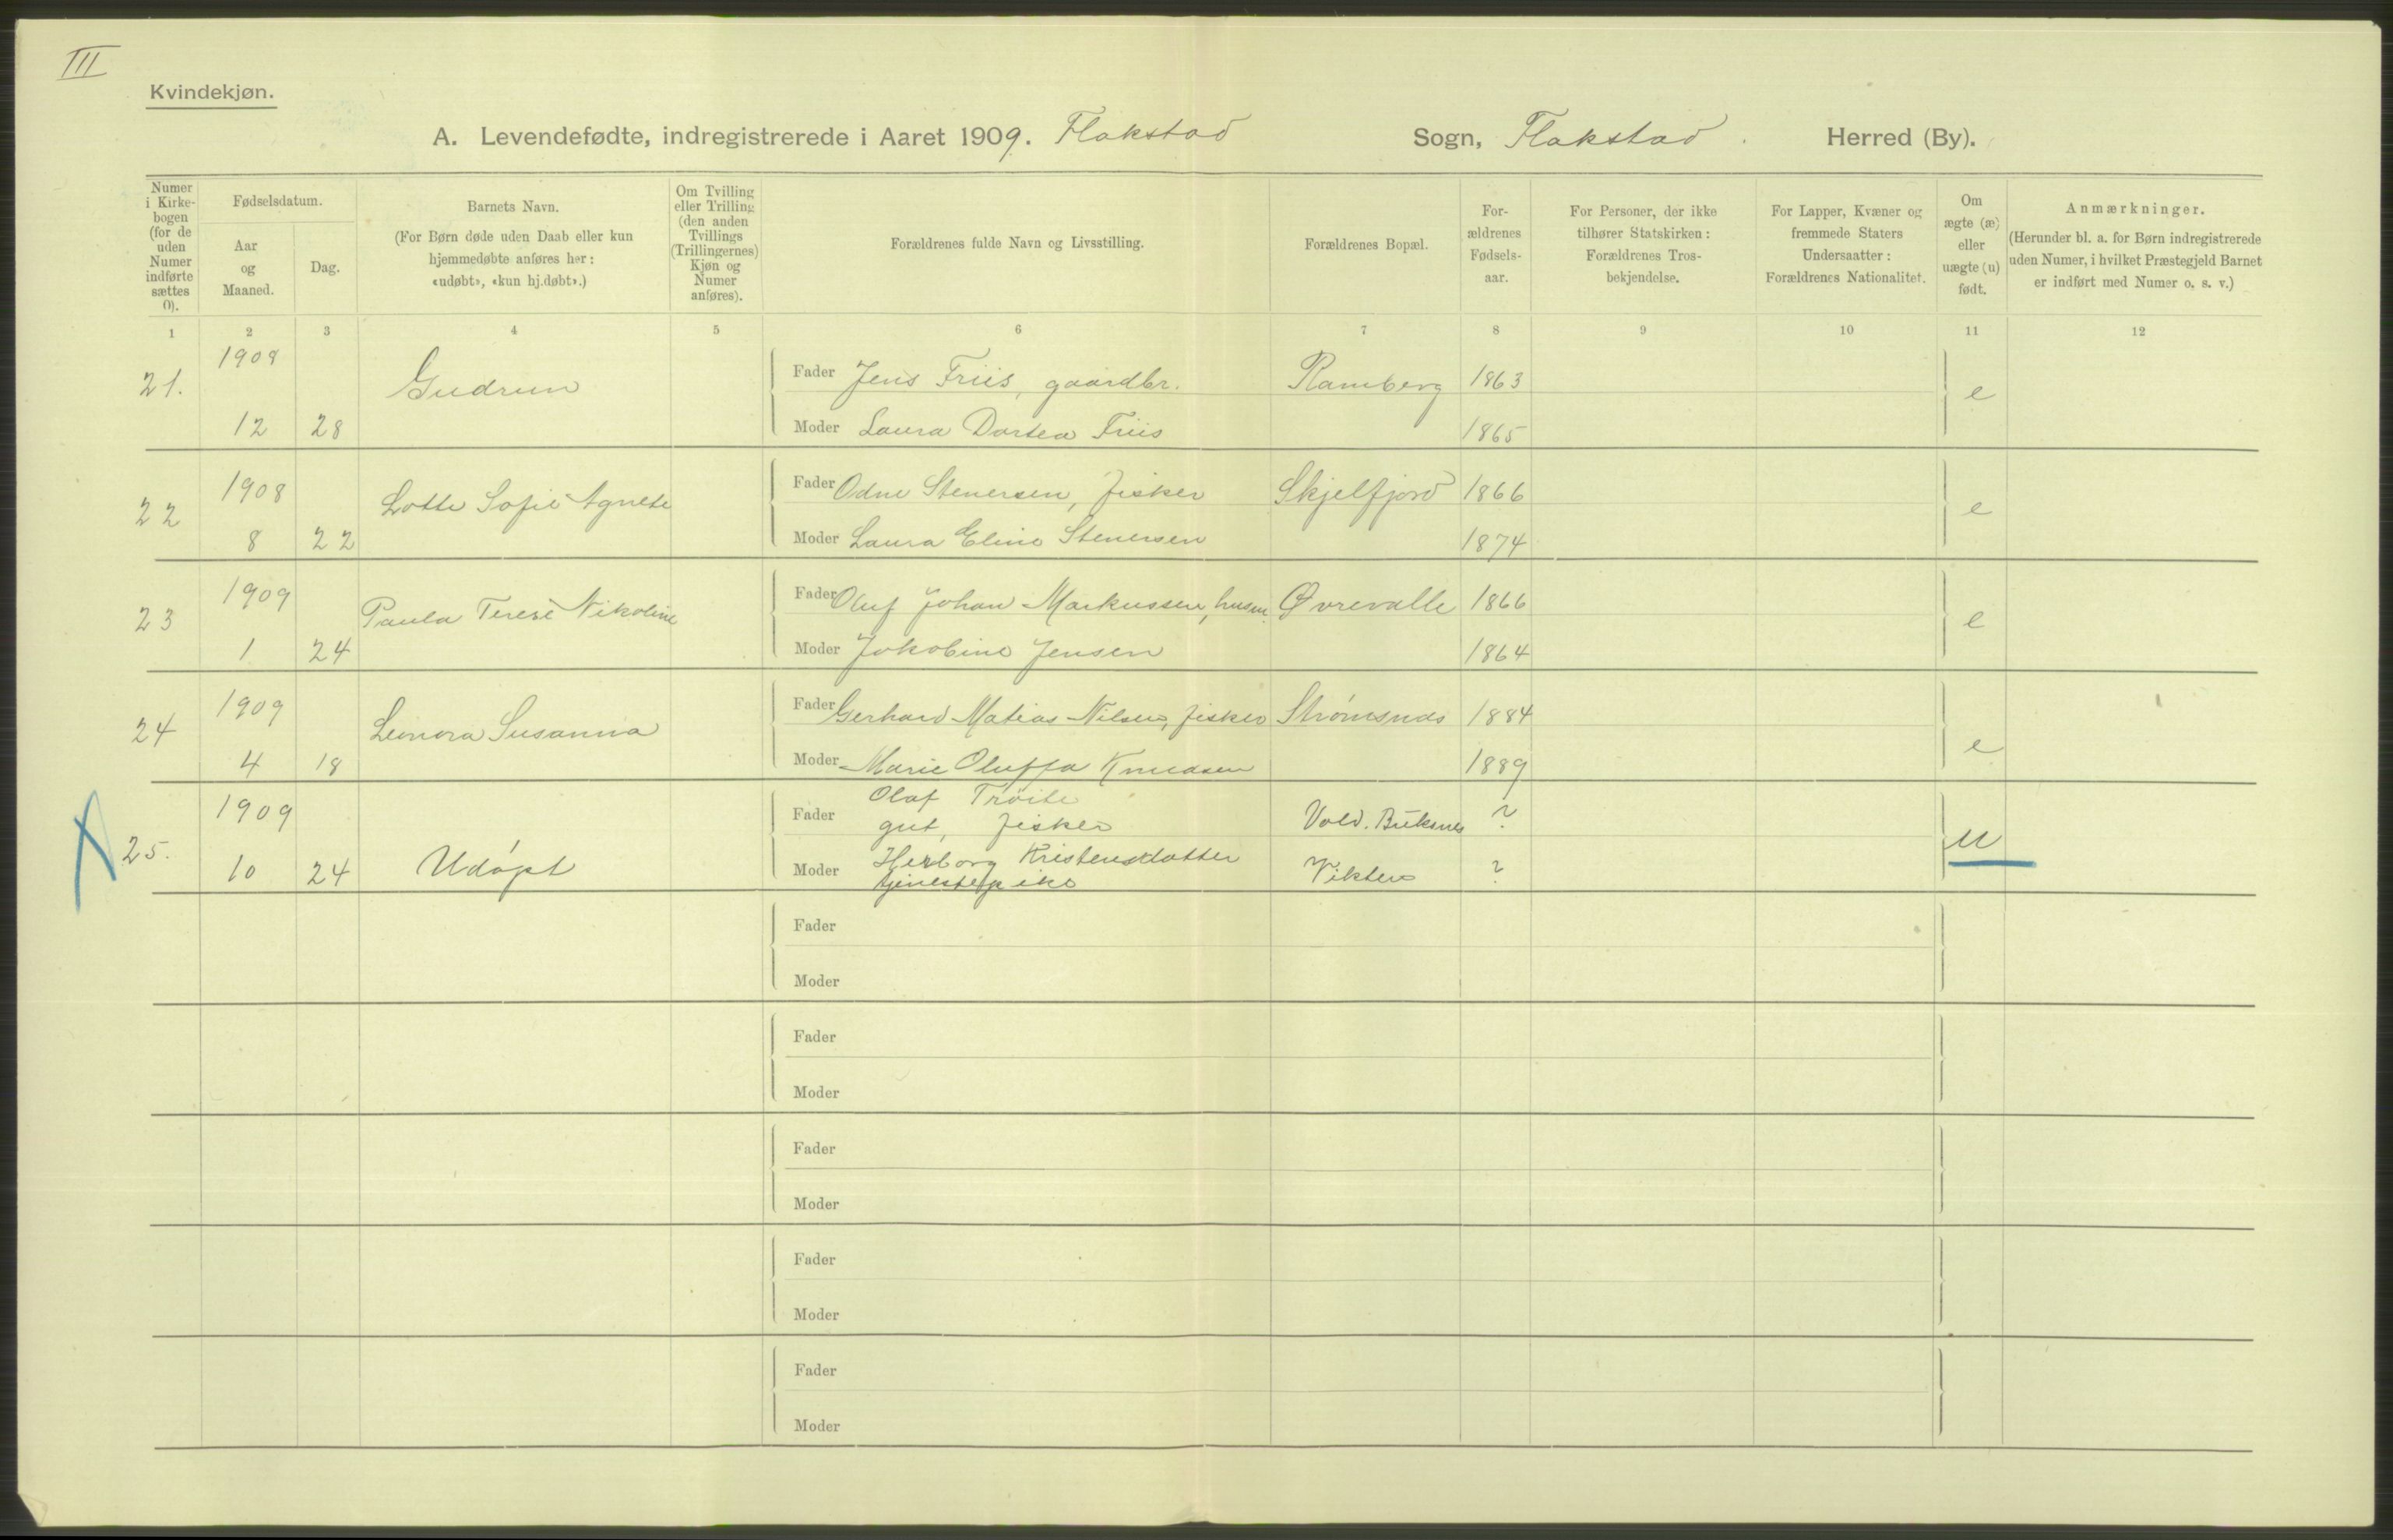 III
Kvindekjøn.
A. Levendefødte, indregistrerede i Aaret 1909. Flakstad Sogn, Flakstad. Herred (By).
Numer i Kirke- bogen (for de uden Numer indførte sættes 0).
Fødselsdatum.
Aar og Maaned.
Dag.
Barnets Navn.
(For Børn døde uden Daab eller kun
hjemmedøbte anføres her:
«udøbt», «kun hj.døbt».)
Om Tvilling
eller Trilling
(den anden
Tvillings
(Trillingernes)
Kjøn og
Numer
anføres).
Forældrenes fulde Navn og Livsstilling.
Forældrenes Bopæl.
For-
ældrenes
Fødsels-
aar.
For Personer, der ikke
tilhører Statskirken:
Forældrenes Tros-
bekjendelse.
For Lapper, Kvæner og
fremmede Staters
Undersaatter:
Forældrenes Nationalitet.
Om
ægte (æ)
eller
uægte (u)
født.
Anmærkninger.
(Herunder bl. a. for Børn indregistrerede
uden Numer, i hvilket Præstegjeld Barnet
er indført med Numer o. s. v.)
1 2 3 4 5 6 7 8 9 10 11 12
21. 1908 12 28 Gudrun
Fader Jens Friis, gaardbr. Ramberg 1863 e
Moder Laura Dortea Friis 1865
22 1908 8 22 Lotte Sofie Agnete
Fader Odin Stenersen, fisker Skjelfjord 1866 e
Moder Laura Eline Stenersen 1874
23 1909 1 24 Paula Terese Nikoline
Fader Oluf Johan Markussen, husm. Øvrevalle 1866 e
Moder Jakobine Jensen 1864
24 1909 4 18 Leonora Susanna
Fader Gerhard Matias Nilsen, fisker Strømsnes 1884 e
Moder Marie Oluffa Knudsen 1889
25. 1909 10 24 Udøpt
Fader Olaf
gut, fisker Vold. Buksnes ? u
Moder Herborg Kristensdatter
tjenestepike Vikten ?
Fader
Moder
Fader
Moder
Fader
Moder
Fader
Moder
Fader
Moder